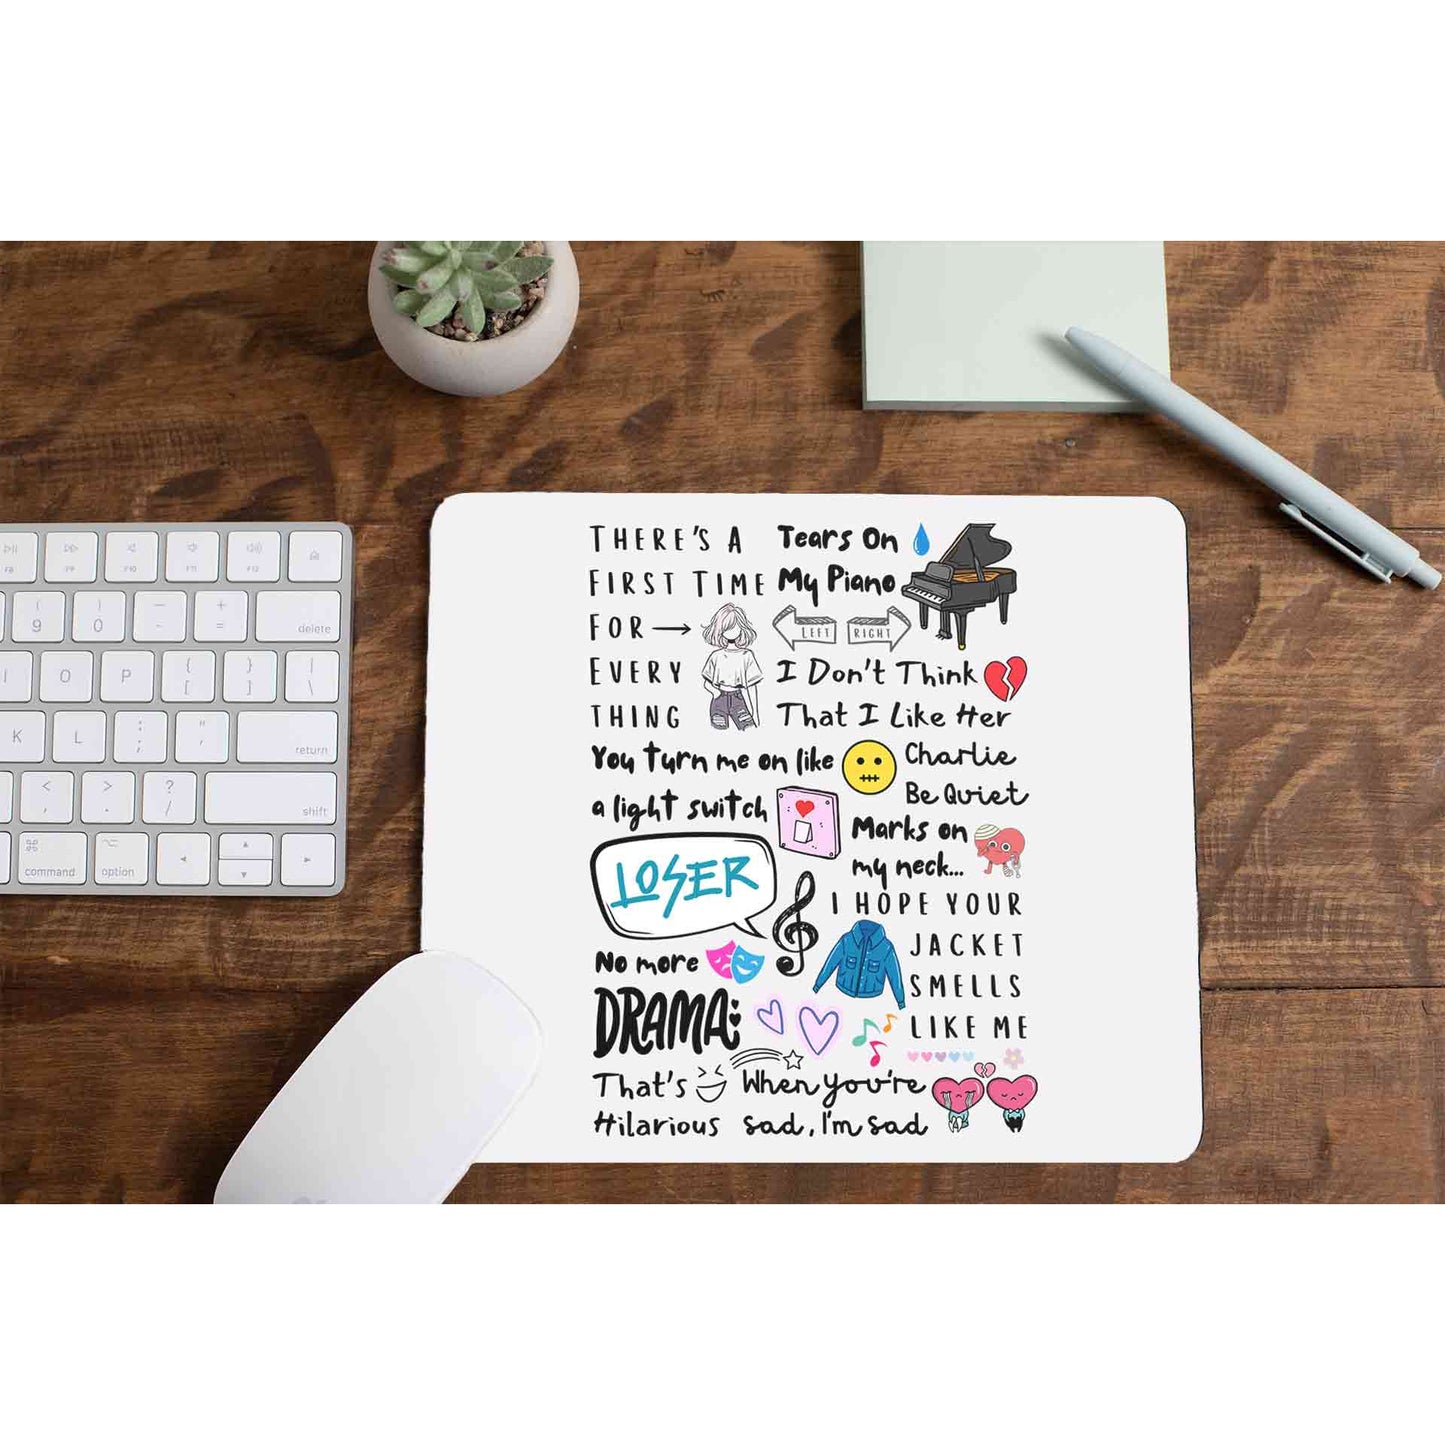 THERE'S A
FIRST TIME
FOR
EVERY
THING
Tears On
My Piano
LEFT RIGHT
I Don't Think
That I Like Her
You turn me on like
a light switch
Charlie
Be Quiet
Marks on
my neck...
LOSER
I HOPE YOUR
JACKET
SMELLS
LIKE ME
No more
DRAMA
That's
Hilarious
When You're
sad, I'm sad
F8 F10 F11 F12
( ) _ +
9 0 - = delete
I O P { }
[ ] | \
K L : " return
; '
< > ? shift
, . /
command option